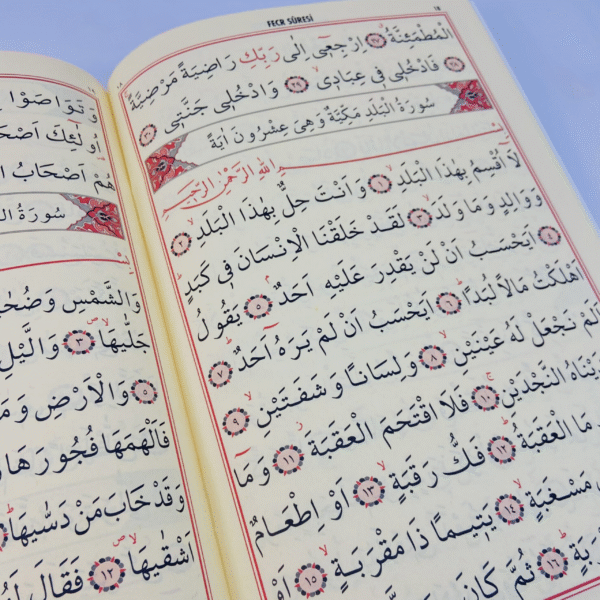 FECR SÛRESİ
الْمُطْمَئِنَّةُ ﴿٢٧﴾ اِرْجِعٖٓى اِلٰى رَبِّكِ رَاضِيَةً مَرْضِيَّةً
﴿٢٨﴾ فَادْخُلٖى فٖى عِبَادٖى ﴿٢٩﴾ وَادْخُلٖى جَنَّتٖى ﴿٣٠﴾
سُورَةُ الْبَلَدِ مَكِّيَّةٌ وَهِىَ عِشْرُونَ اٰيَةً
بِسْمِ اللّٰهِ الرَّحْمٰنِ الرَّحٖيمِ
لَٓا اُقْسِمُ بِهٰذَا الْبَلَدِ ﴿١﴾ وَاَنْتَ حِلٌّ بِهٰذَا الْبَلَدِ ﴿٢﴾
وَوَالِدٍ وَمَا وَلَدَ ﴿٣﴾ لَقَدْ خَلَقْنَا الْاِنْسَانَ فٖى كَبَدٍ
﴿٤﴾ اَيَحْسَبُ اَنْ لَنْ يَقْدِرَ عَلَيْهِ اَحَدٌ ﴿٥﴾ يَقُولُ
اَهْلَكْتُ مَالًا لُبَدًا ﴿٦﴾ اَيَحْسَبُ اَنْ لَمْ يَرَهُٓ اَحَدٌ ﴿٧﴾
اَلَمْ نَجْعَلْ لَهُ عَيْنَيْنِ ﴿٨﴾ وَلِسَانًا وَشَفَتَيْنِ ﴿٩﴾
النَّجْدَيْنِ ﴿١٠﴾ فَلَا اقْتَحَمَ الْعَقَبَةَ ﴿١١﴾ وَمَٓا
مَا الْعَقَبَةُ ﴿١٢﴾ فَكُّ رَقَبَةٍ ﴿١٣﴾ اَوْ اِطْعَامٌ
مَسْغَبَةٍ ﴿١٤﴾ يَتٖيمًا ذَا مَقْرَبَةٍ ﴿١٥﴾ اَوْ
﴿١٦﴾ ثُمَّ كَانَ
وَتَوَاصَوْا
اُولٰٓئِكَ اَصْحَا
هُمْ اَصْحَابُ
سُورَةُ
وَالشَّمْسِ وَضُحٰيهَا
جَلّٰيهَا ﴿٣﴾ وَالَّيْلِ
﴿٥﴾ وَالْاَرْضِ وَمَا
فَاَلْهَمَهَا فُجُورَهَا
وَقَدْ خَابَ مَنْ دَسّٰيهَا
اَشْقٰيهَا ﴿١٢﴾ فَقَالَ